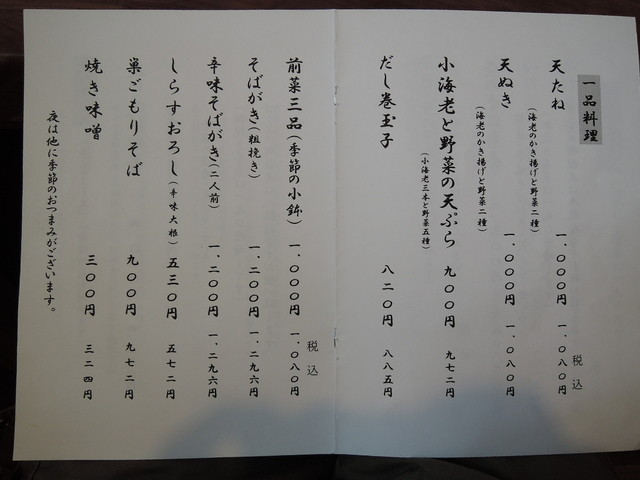 一品料理
天たね 一、〇〇〇円 一、〇八〇円
(海老のかき揚げと野菜二種)
税込
天ぬき 一、〇〇〇円 一、〇八〇円
(海老のかき揚げと野菜二種)
小海老と野菜の天ぷら 九〇〇円 九七二円
(小海老三本と野菜五種)
だし巻玉子 八二〇円 八八五円
税込
前菜三品(季節の小鉢) 一、〇〇〇円 一、〇八〇円
そばがき(粗挽き) 一、二〇〇円 一、二九六円
辛味そばがき(二人前) 一、二〇〇円 一、二九六円
しらすおろし(辛味大根) 五三〇円 五七二円
巣ごもりそば 九〇〇円 九七二円
焼き味噌 三〇〇円 三二四円
夜は他に季節のおつまみがございます。